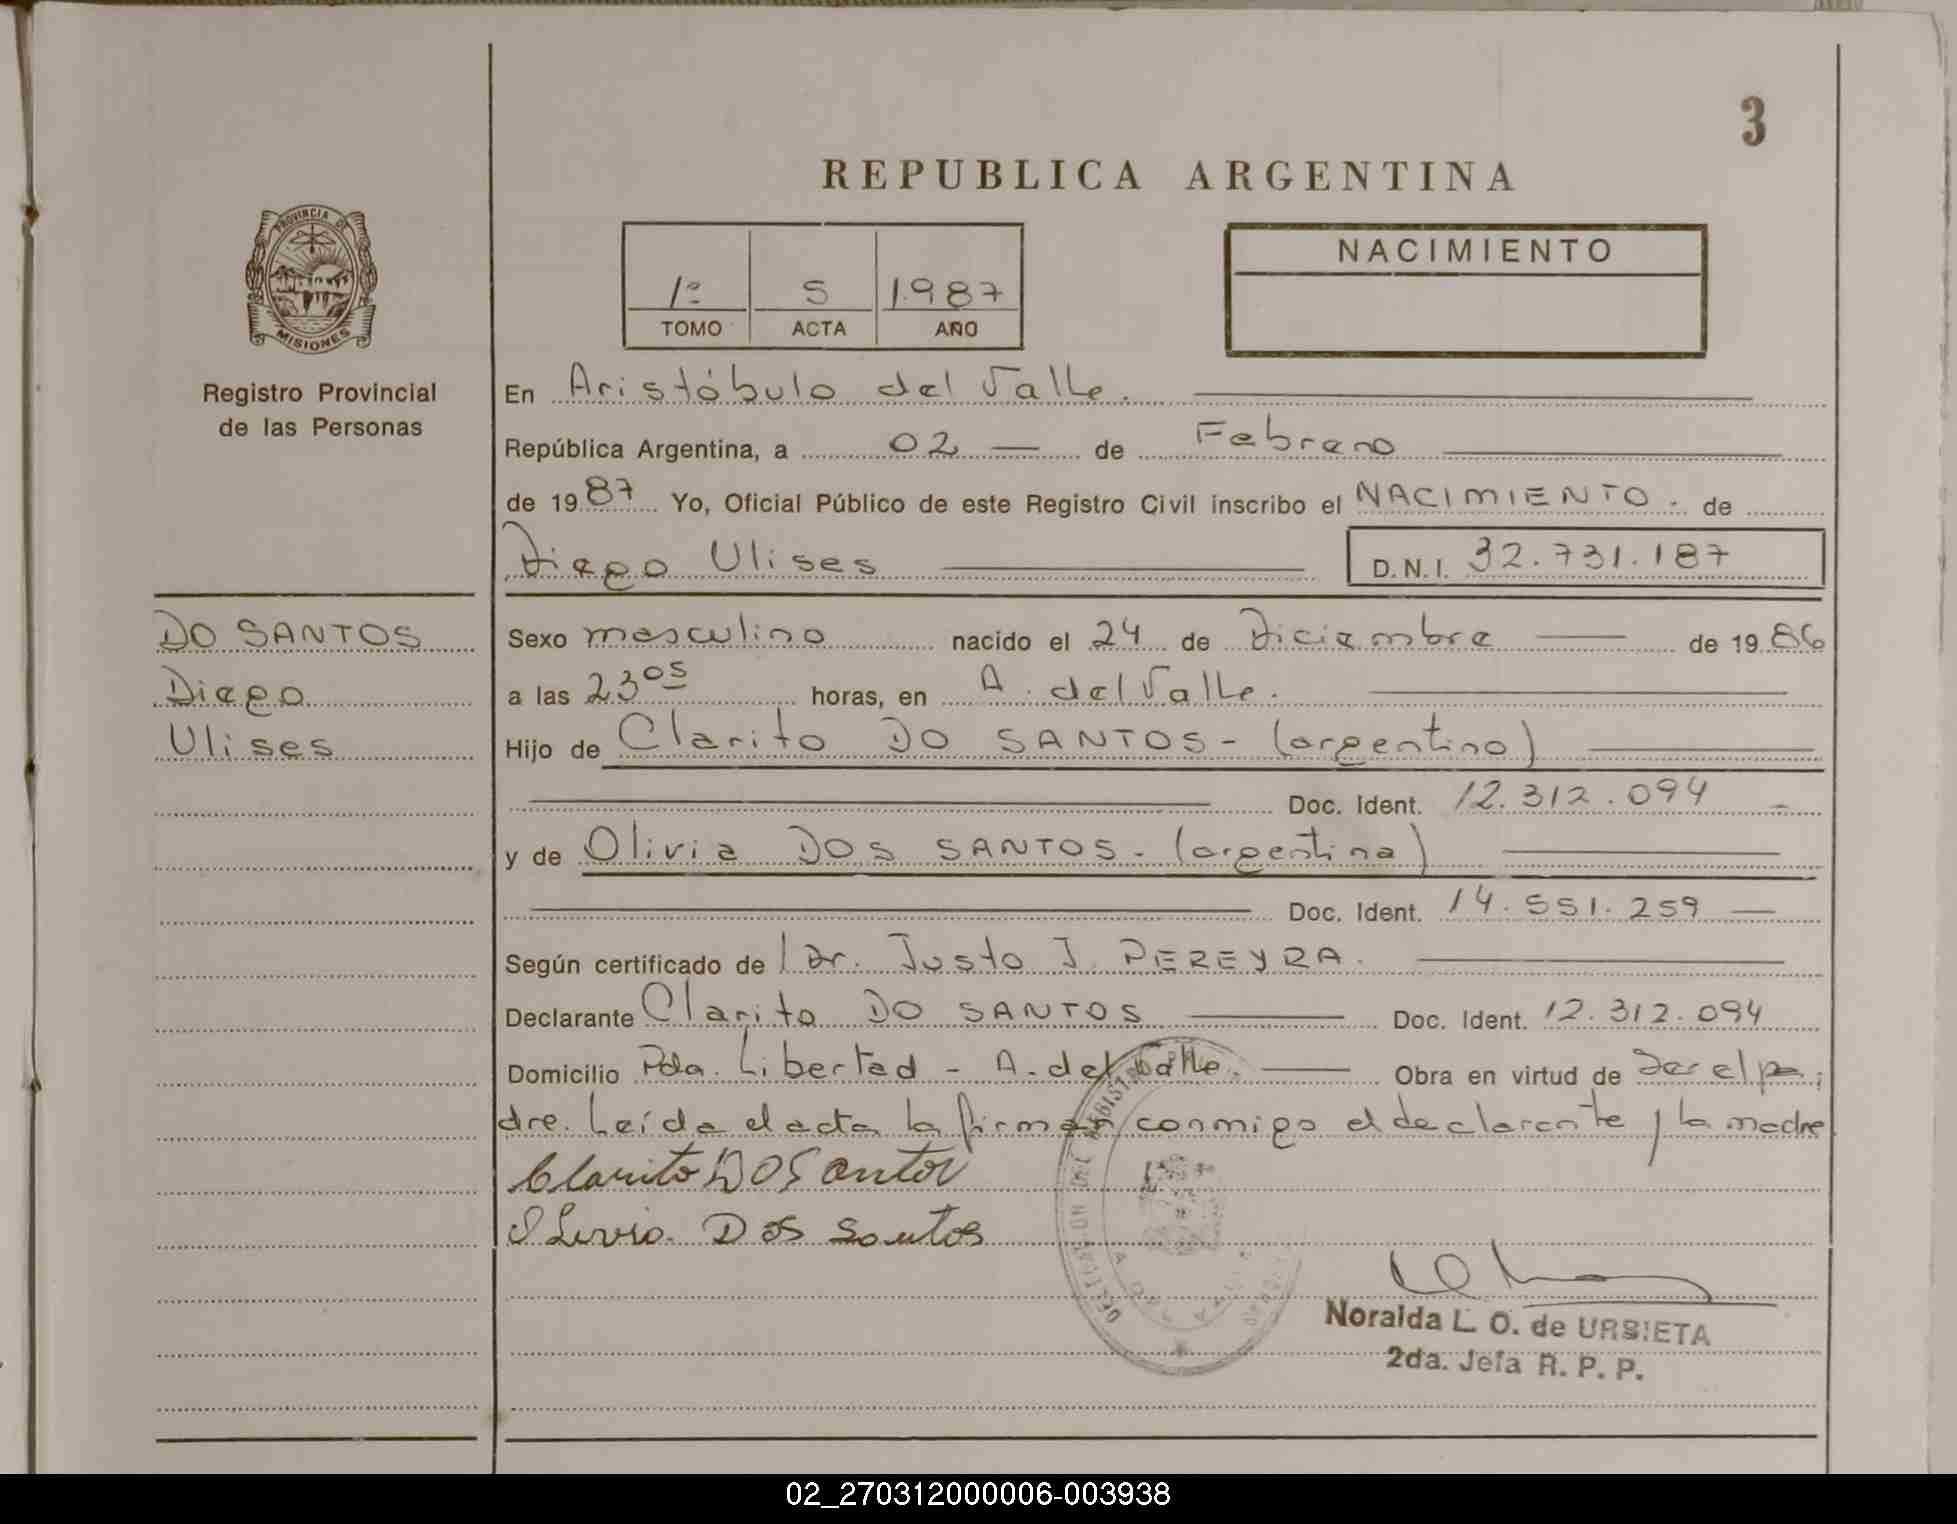 3
REPUBLICA ARGENTINA
PROVINCIA DE
MISIONES
Registro Provincial
de las Personas
1º 5 1.987
TOMO ACTA AÑO
NACIMIENTO
En Aristóbulo del Valle.
República Argentina, a 02 — de Febrero
de 1987 Yo, Oficial Público de este Registro Civil inscribo el NACIMIENTO - de
Diego Ulises D.N.I. 32.731.187
DO SANTOS
Diego
Ulises
Sexo masculino nacido el 24 de Diciembre — de 1986
a las 23⁰⁵ horas, en A. del Valle.
Hijo de Clarito DO SANTOS - (argentino)
Doc. Ident. 12.312.094
y de Olivia DOS SANTOS - (argentina)
Doc. Ident. 14.551.259 —
Según certificado de Dr. Justo J. PEREYRA.
Declarante Clarito DO SANTOS — Doc. Ident. 12.312.094
Domicilio Pda. Libertad - A. del Valle. — Obra en virtud de ser el pa
dre. Leída el acta la firman conmigo el declarante y la madre
Clarito DO Santos
Olivia Dos Santos
DELEGACION DEL REGISTRO
Noralda L. O. de URSIETA
2da. Jefa R. P. P.
02_270312000006-003938